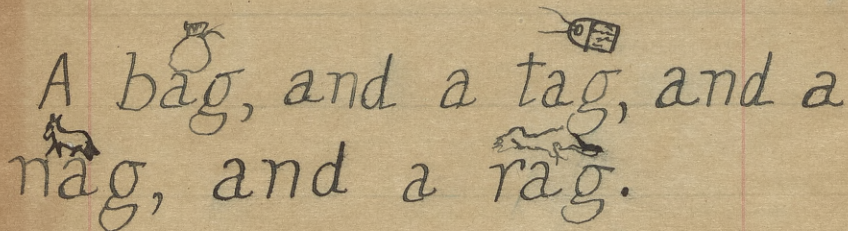 A bag, and a tag, and a
nag, and a rag.